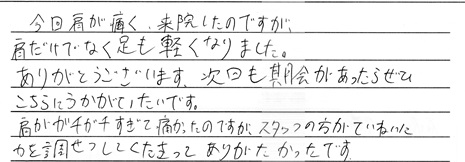 今回肩が痛く、来院したのですが、
肩だけでなく足も軽くなりました。
ありがとうございます。次回も機会があったらぜひ
こちらにうかがいたいです。
肩がガチガチすぎて痛かったのですが、スタッフの方がていねいに
力を調せつしてくださって ありがたかったです